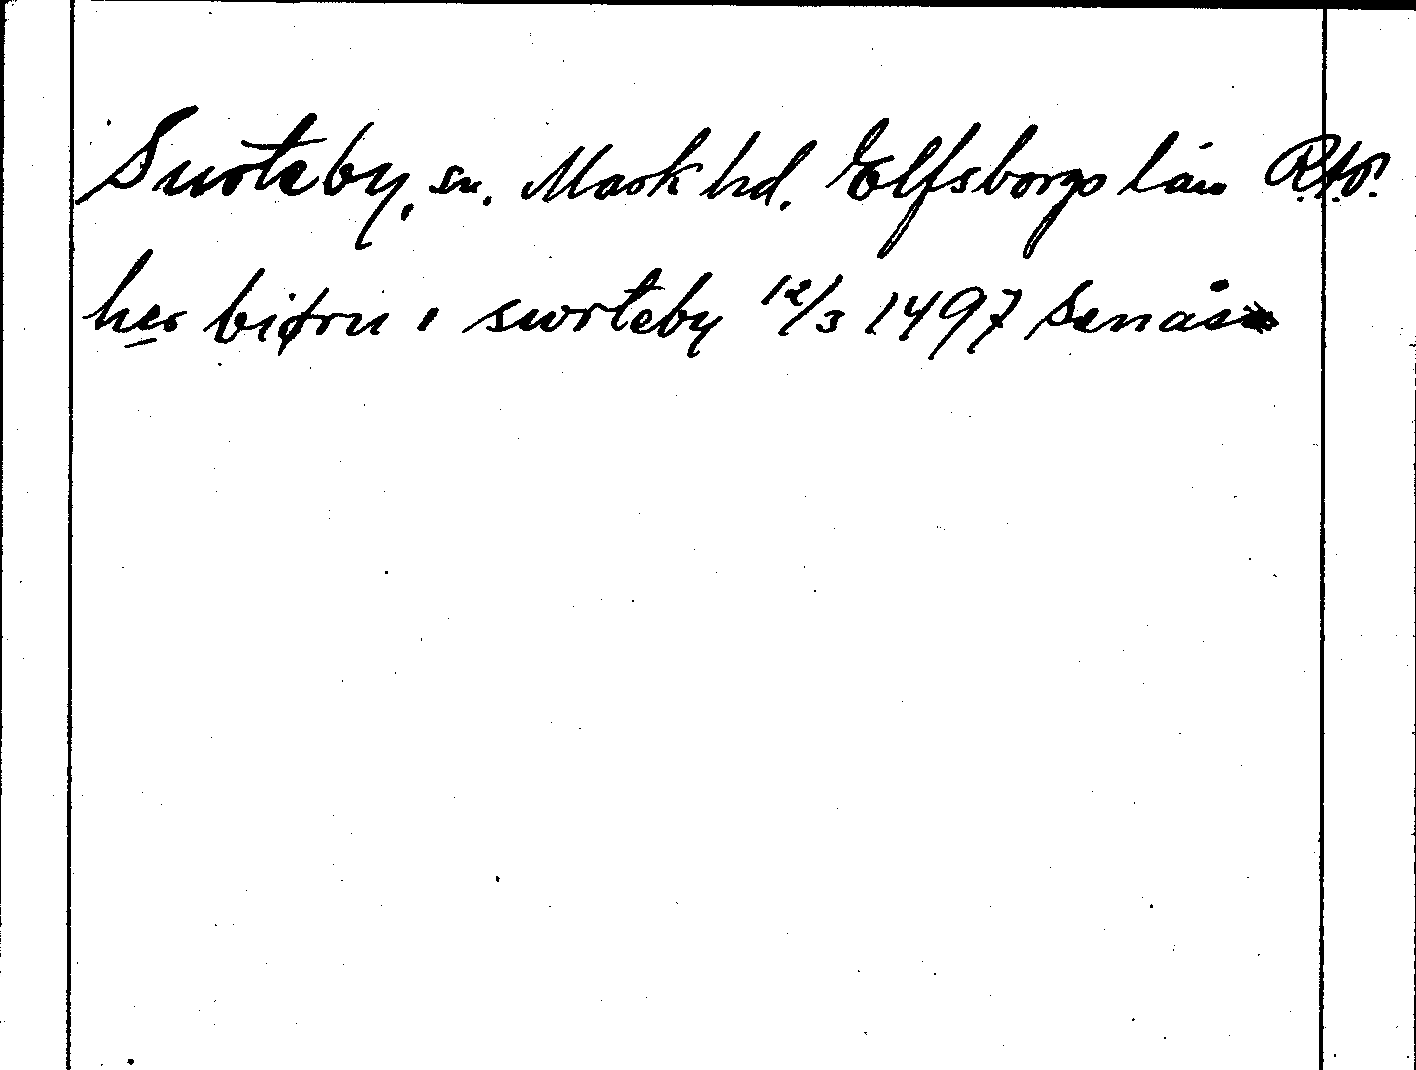 Surteby, sn. Mark hd. Elfsborgs län R.A.P.
her biørn i swrteby 12/3 1497 Senäs